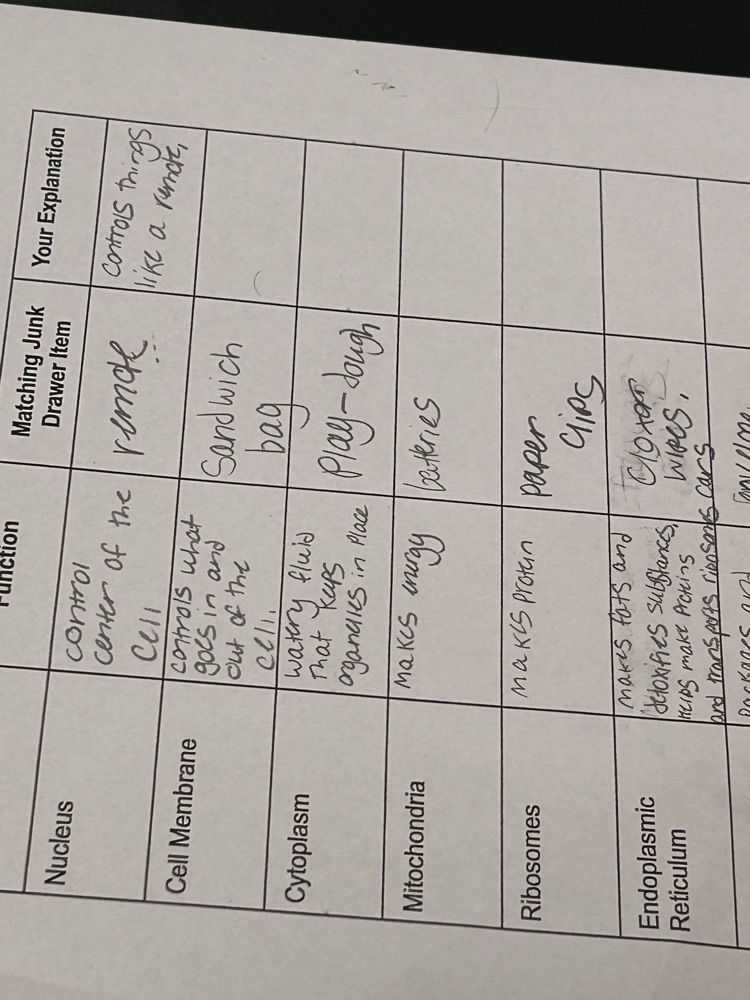 Function
Matching Junk
Drawer Item
Your Explanation
Nucleus
control
center of the
cell
remote
controls things
like a remote.
Cell Membrane
controls what
goes in and
out of the
cell.
Sandwich
bag
Cytoplasm
watery fluid
that keeps
organelles in place
Play-dough
Mitochondria
makes energy
batteries
Ribosomes
makes protein
paper
clips
Endoplasmic
Reticulum
makes fats and
detoxifies substances,
helps make proteins
and transports ribosomes
wipes,
cars
Packages and